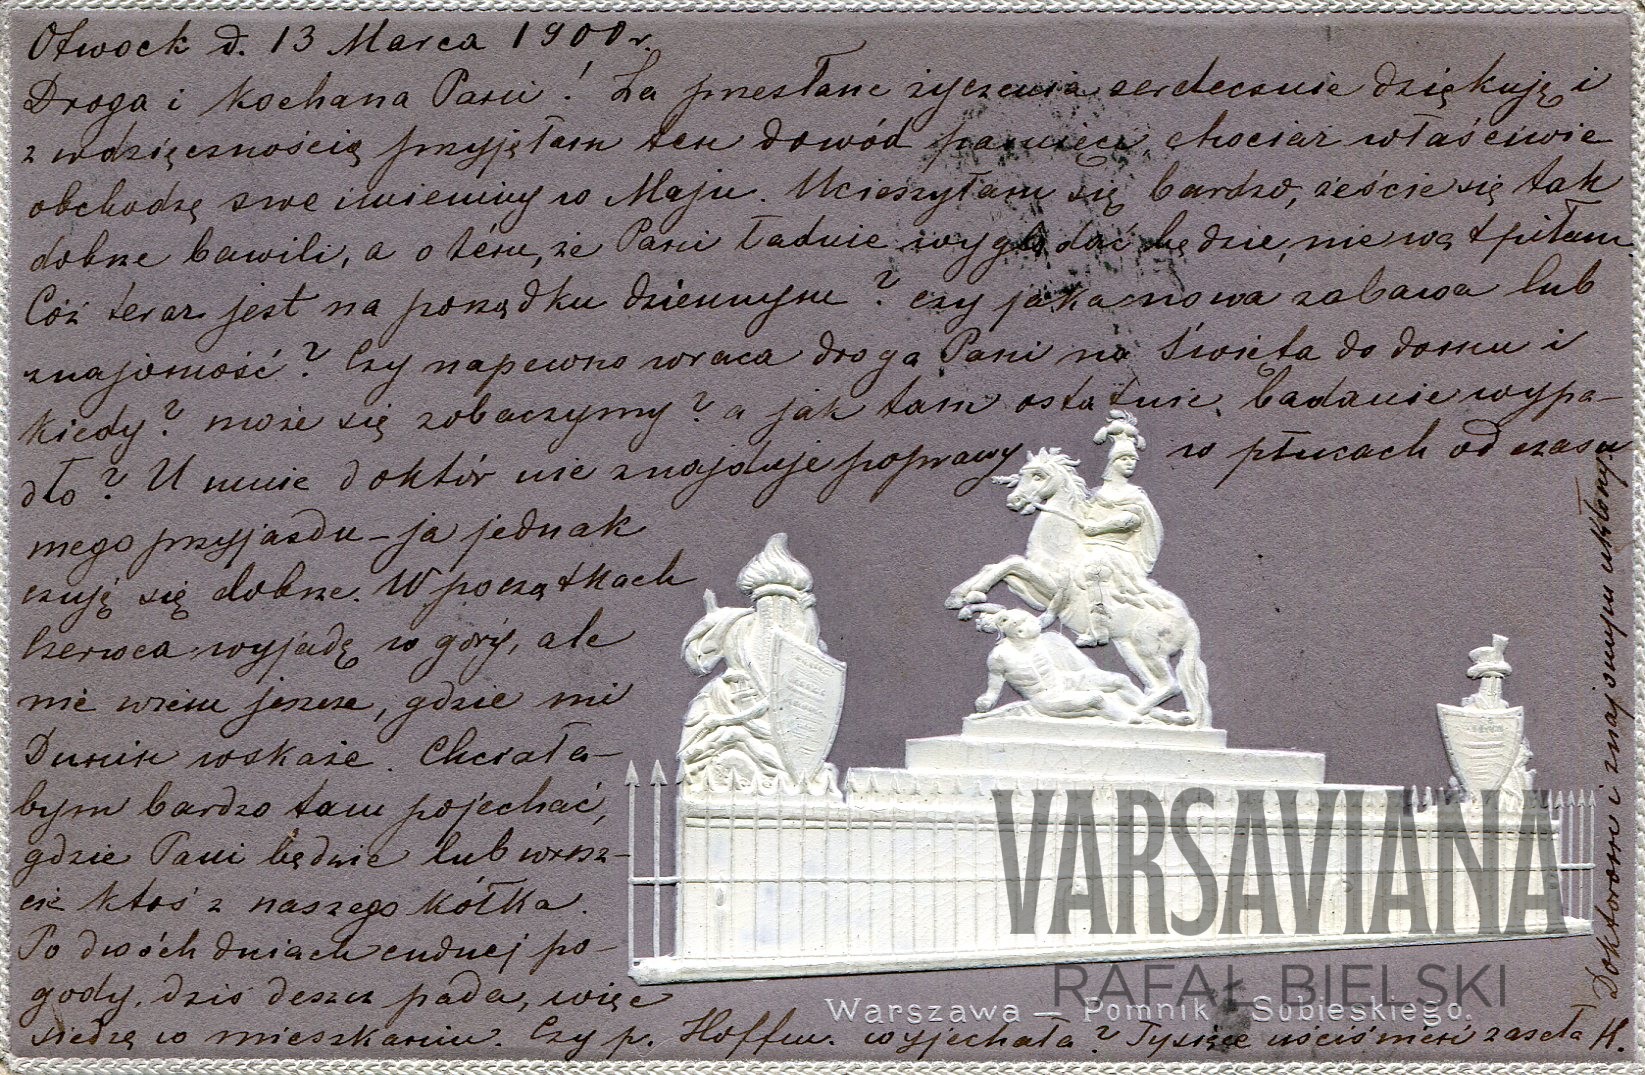 Otwock d. 13 Marca 1900 r.
Droga i kochana Pani! Za przesłane życzenia serdecznie dziękuję i
z wdzięcznością przyjęłam ten dowód pamięci, chociaż właściwie
obchodzę swe imieniny w Maju. Ucieszyłam się bardzo, żeście się tak
dobrze bawili, a o tém, że Pani ładnie wyglądać będzie, nie wątpiłam.
Cóż teraz jest na porządku dziennym? czy jaka nowa zabawa lub
znajomość? Czy napewno wraca droga Pani na Święta do domu i
kiedy? może się zobaczymy? a jak tam ostatnie badanie wypa-
dło? U mnie doktór nie znajduje poprawy w płucach od czasu
mego przyjazdu – ja jednak
czuję się dobrze. W początkach
Czerwca wyjadę w góry, ale
nie wiem jeszcze, gdzie mi
Dunin wskaże. Chciała-
bym bardzo tam pojechać,
gdzie Pani będzie lub wresz-
cie ktoś z naszego kółka.
Po dwóch dniach cudnej po-
gody, dziś deszcz pada, więc
siedzę w mieszkaniu. Czy p. Hoffm. wyjechała? Tysiące uściśnień zaseła H.
Doktorom i znajomym ukłony.
Warszawa – Pomnik Sobieskiego.
VARSAVIANA
RAFAŁ BIELSKI